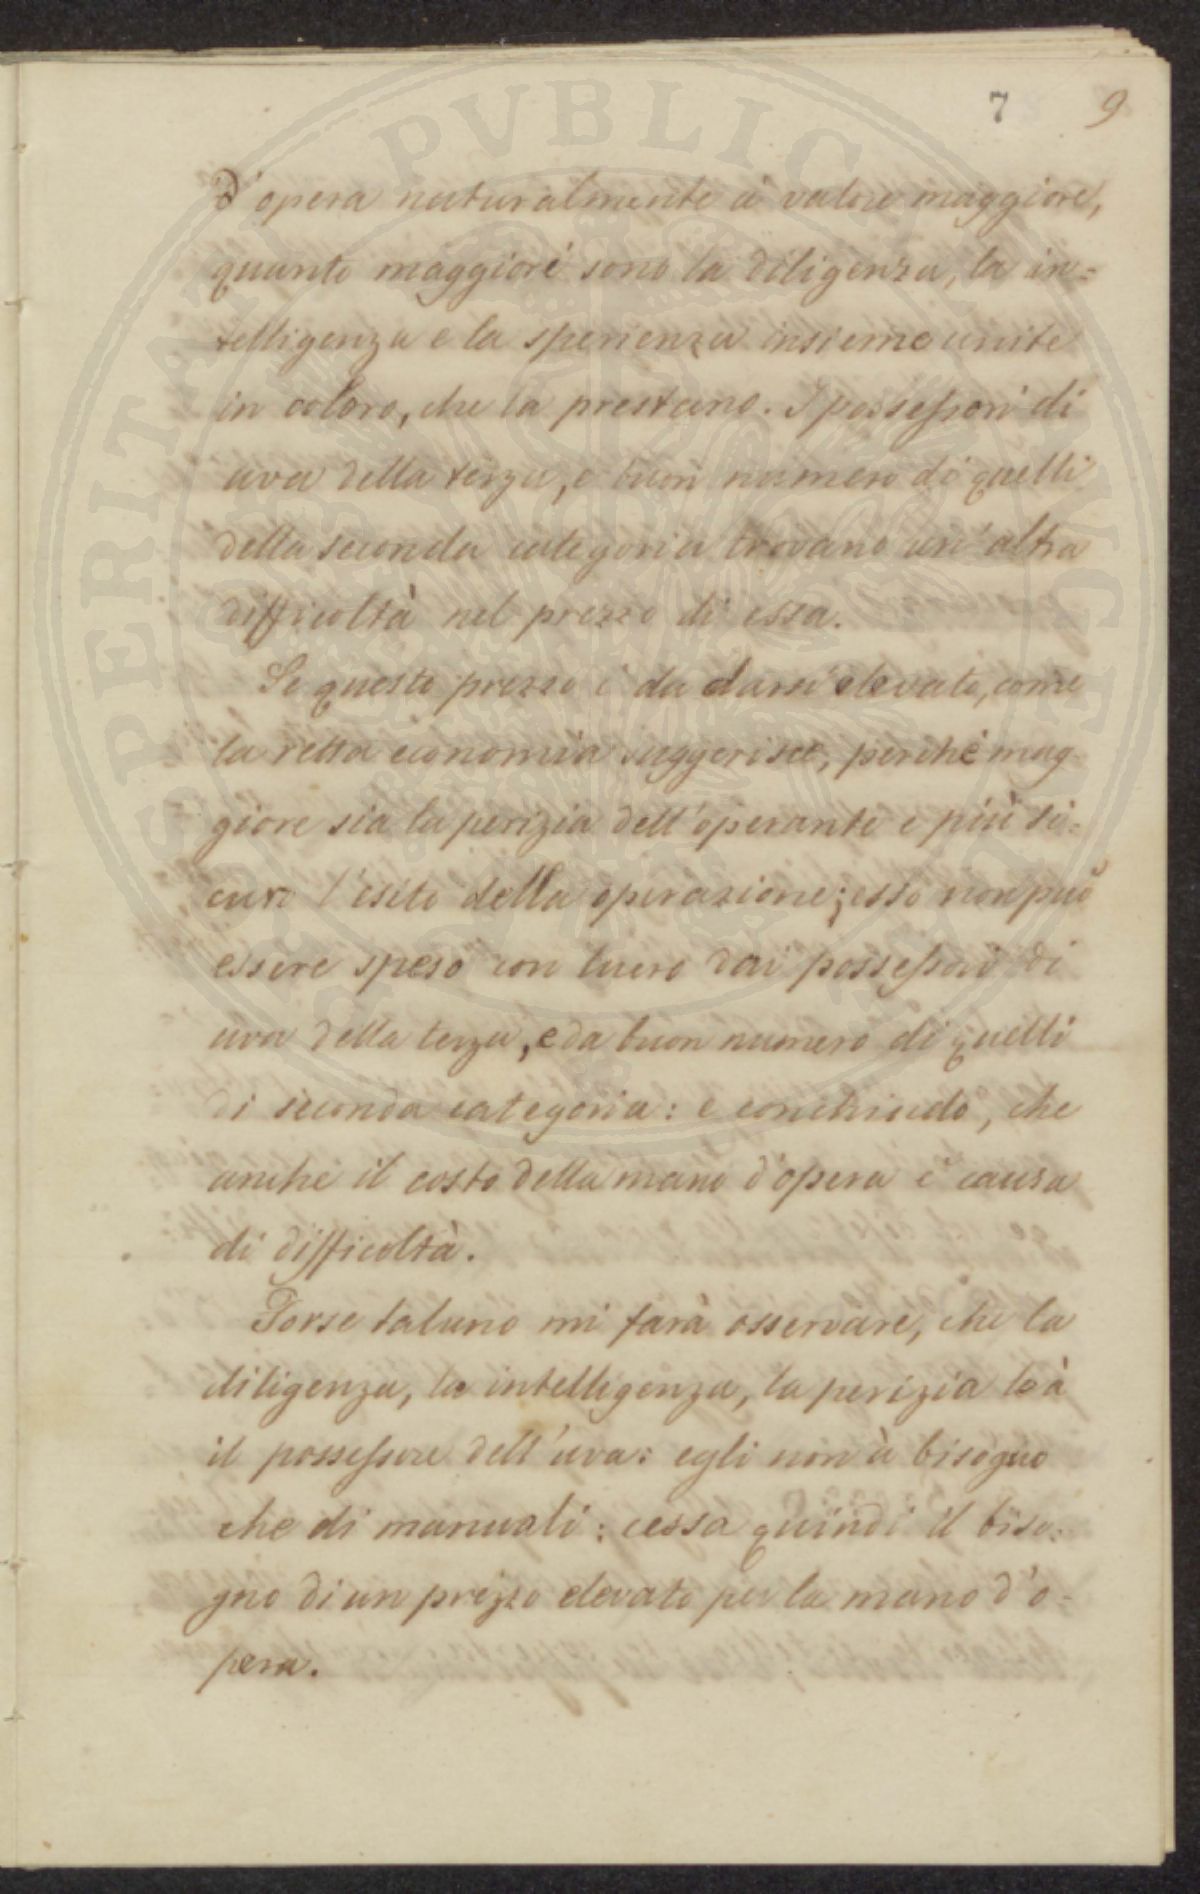 7 9
d'opera naturalmente à valore maggiore,
quanto maggiori sono la diligenza, la in=
telligenza e la sperienza insieme unite
in coloro, che la prestano. I possessori di
uva della terza, e buon numero di quelli
della seconda categoria trovano un'altra
difficoltà nel prezzo di essa.
Se questo prezzo è da darsi elevato, come
la retta economia suggerisce, perchè mag=
giore sia la perizia dell'operante e più si=
curo l'esito della operazione; esso non può
essere speso con lucro dai possessori di
uva della terza, e da buon numero di quelli
di seconda categoria: e conchiudo, che
anche il costo della mano d'opera è causa
di difficoltà.
Forse taluno mi farà osservare, che la
diligenza, la intelligenza, la perizia la à
il possessore dell'uva: egli non à bisogno
che di manuali: cessa quindi il biso=
gno di un prezzo elevato per la mano d'o=
pera.
PROSPERITATI PVBLICAE AVGENDAE